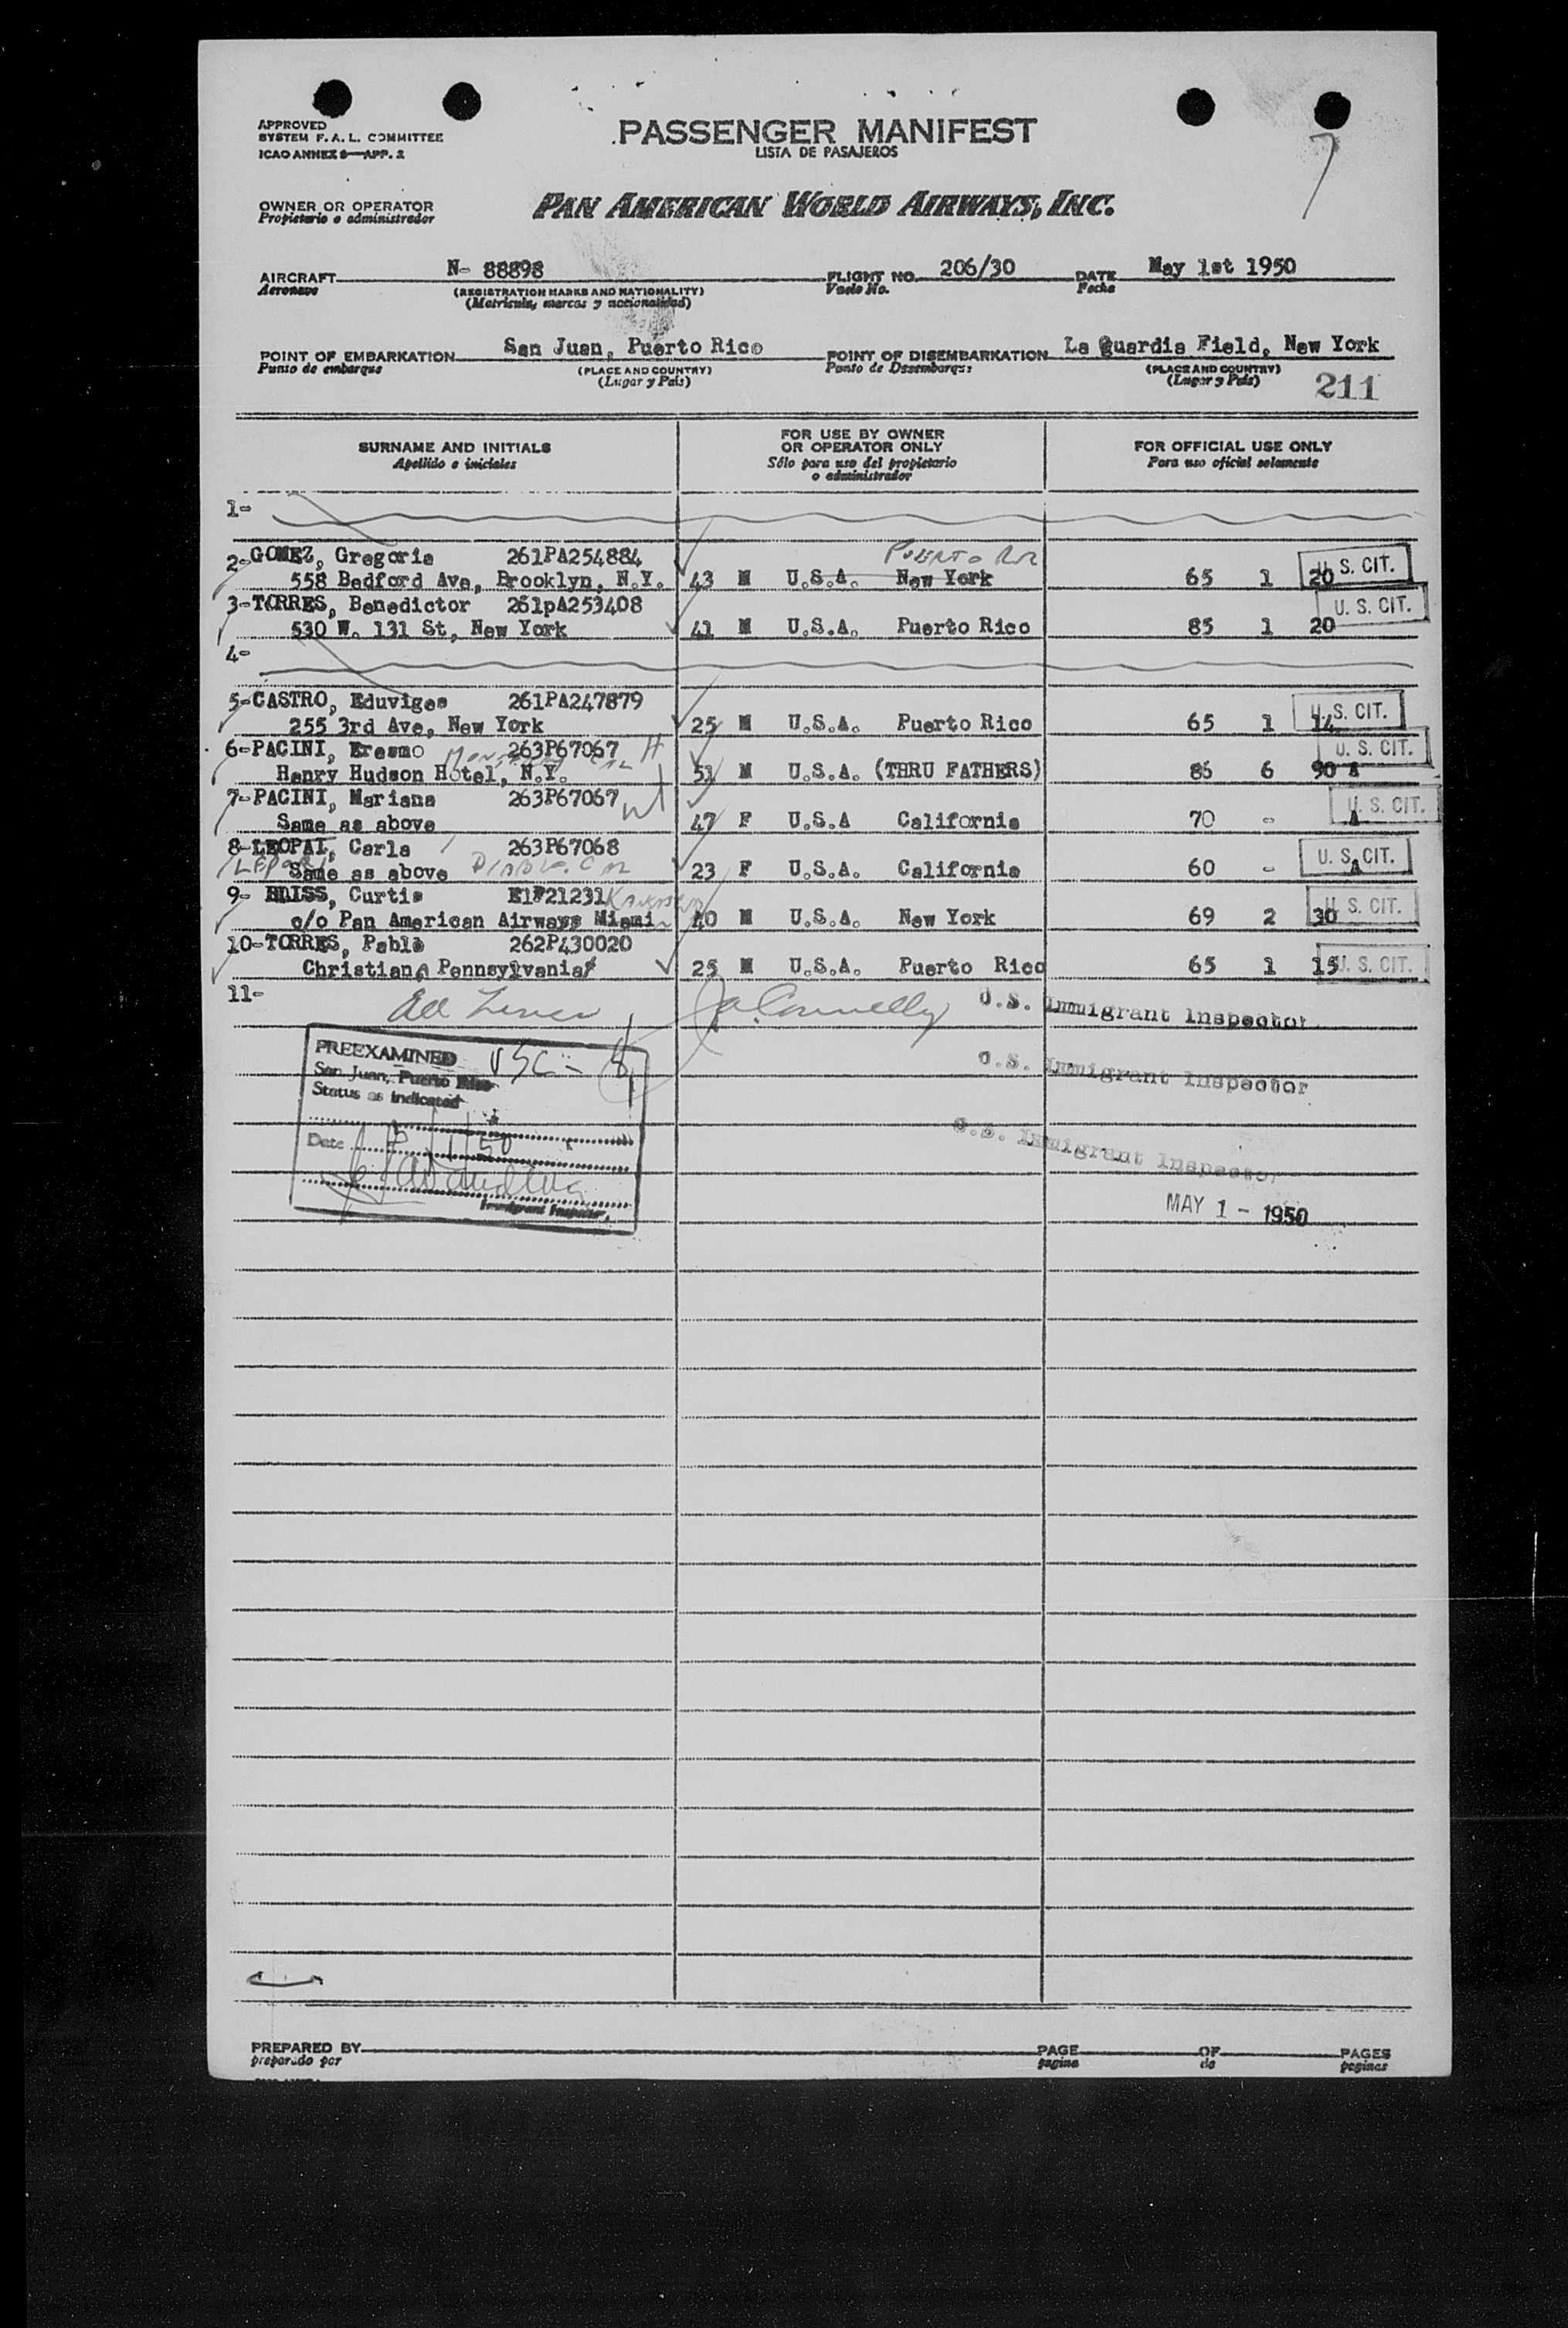 APPROVED
SYSTEM F. A. L. COMMITTEE
ICAO ANNEX 9—APP. 2
PASSENGER MANIFEST
LISTA DE PASAJEROS
7
OWNER OR OPERATOR
Propietario o administrador
PAN AMERICAN WORLD AIRWAYS, INC.
AIRCRAFT N- 88898 FLIGHT NO. 206/30 DATE May 1st 1950
Aeronave (REGISTRATION MARKS AND NATIONALITY) Vuelo No. Fecha
(Matricula, marcas y nacionalidad)
POINT OF EMBARKATION San Juan, Puerto Rico POINT OF DISEMBARKATION La Guardia Field, New York
Punto de embarque (PLACE AND COUNTRY) Punto de Desembarque (PLACE AND COUNTRY)
(Lugar y País) (Lugar y País)
211
SURNAME AND INITIALS FOR USE BY OWNER OR OPERATOR ONLY FOR OFFICIAL USE ONLY
Apellido e iniciales Sólo para uso del propietario o administrador Para uso oficial solamente
1-
2-GOMEZ, Gregoria 261PA254884 Puerto Rico
558 Bedford Ave, Brooklyn, N.Y. 43 M U.S.A. New York 65 1 20 U. S. CIT.
3-TORRES, Benedictor 261pA253408 U. S. CIT.
530 W. 131 St, New York 41 M U.S.A. Puerto Rico 85 1 20
4-
5-CASTRO, Eduviges 261PA247879
255 3rd Ave, New York 25 M U.S.A. Puerto Rico 65 1 14 U. S. CIT.
6-PACINI, Eresmo 263P67067 H U. S. CIT.
Henry Hudson Hotel, N.Y. 51 M U.S.A. (THRU FATHERS) 86 6 90 A
7-PACINI, Mariana 263P67067 W U. S. CIT.
Same as above 47 F U.S.A California 70 - A
8-LEOPAI, Carla 263P67068
Same as above 23 F U.S.A. California 60 - A U. S. CIT.
9- BLISS, Curtis E1P21231
c/o Pan American Airways Miami 40 M U.S.A. New York 69 2 30 U. S. CIT.
10-TORRES, Pablo 262P430020
Christiana Pennsylvania 25 M U.S.A. Puerto Rico 65 1 15 U. S. CIT.
11-
U.S. Immigrant Inspector
PREEXAMINED USC - 8
San Juan, Puerto Rico
Status as indicated
U.S. Immigrant Inspector
Date
U.S. Immigrant Inspector
Immigrant Inspector.
MAY 1 - 1950
PREPARED BY PAGE OF PAGES
preparado por pagina de paginas